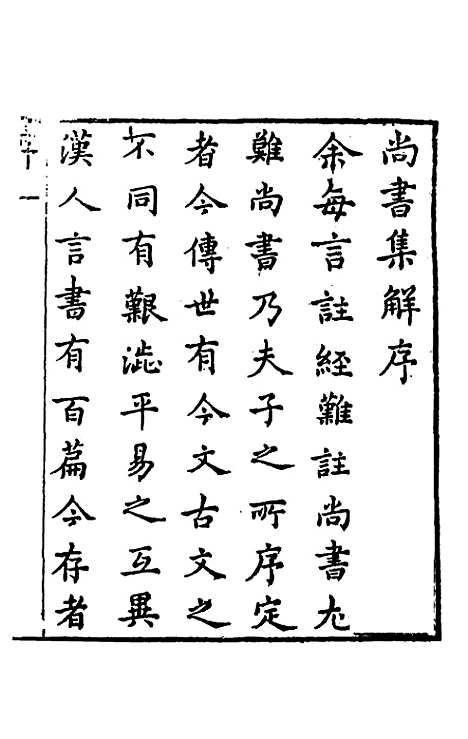 尚書集解序
余每言註經難註尚書尤
難尚書乃夫子之所序定
者今傳世有今文古文之
不同有艱澁平易之互異
漢人言書有百篇今存者
序 一